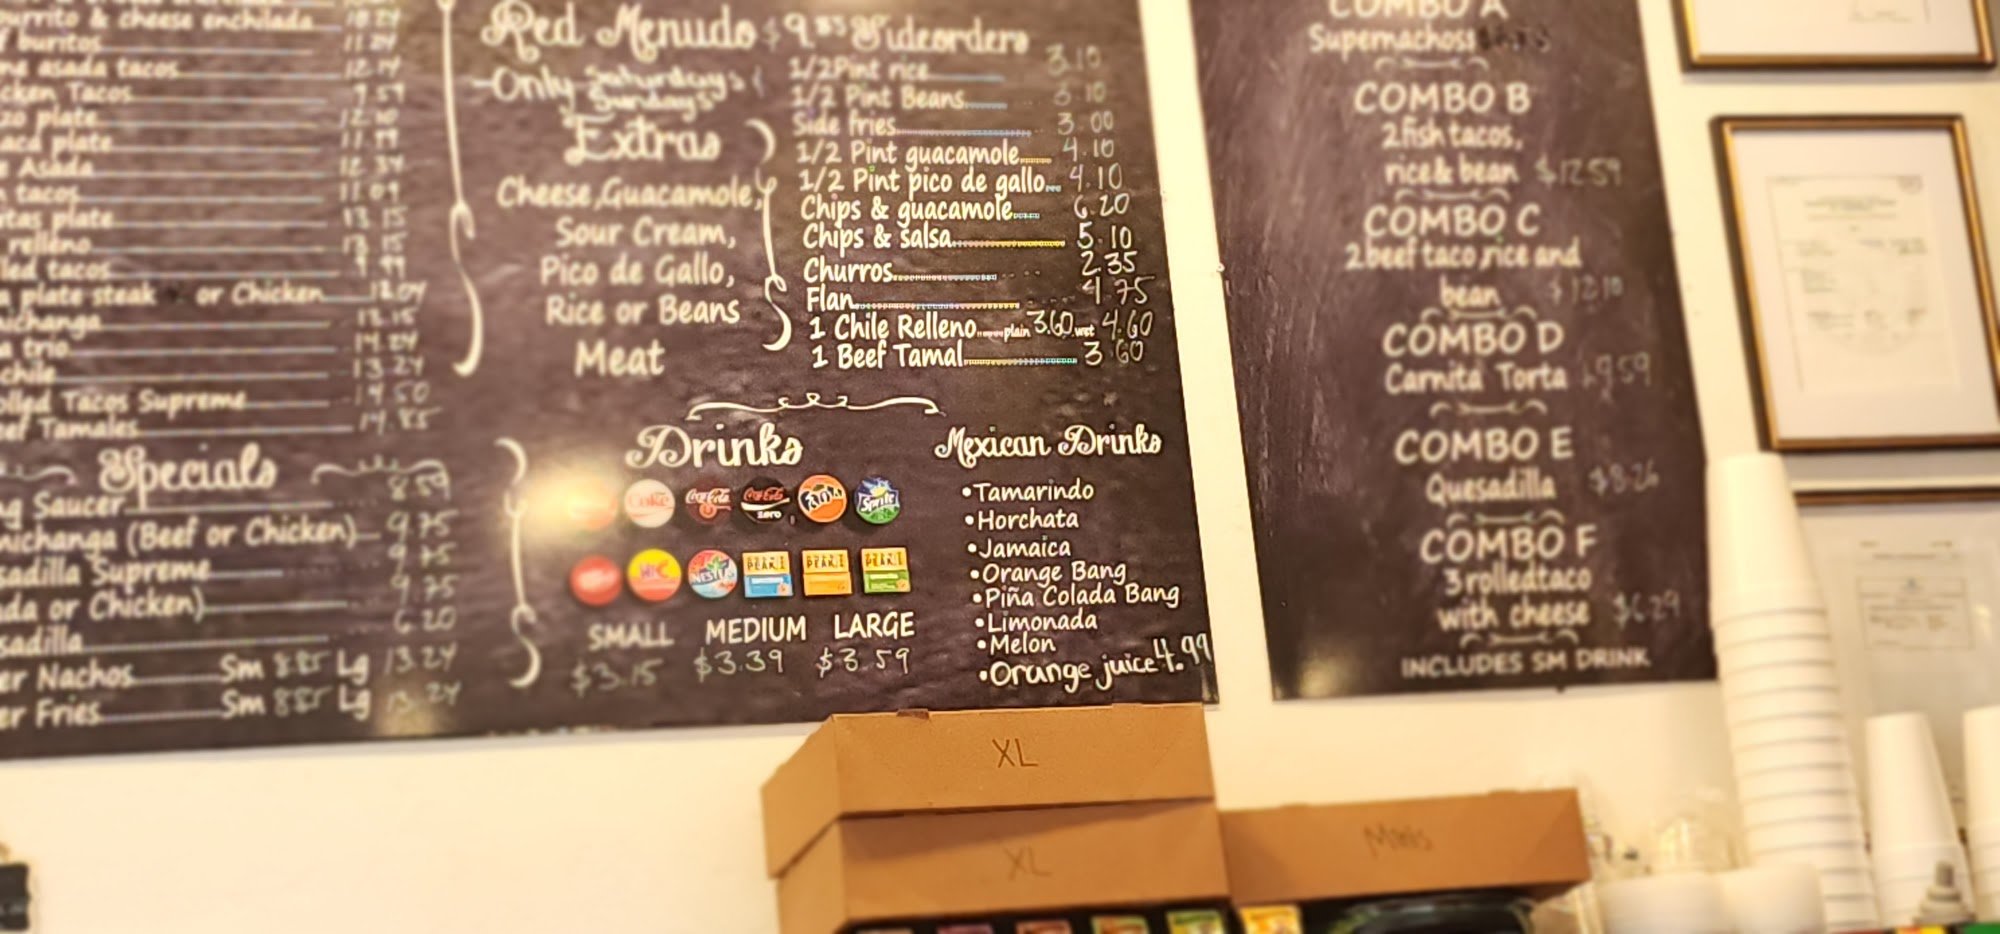 burrito & cheese enchilada 10.24
buritos 11.24
asada tacos 12.14
Tacos 9.59
plate 12.10
plate 11.99
Asada 12.34
tacos 11.09
plate 13.15
relleno 13.15
tacos 9.99
plate steak or Chicken
13.15
trio 14.24
chile 13.24
Tacos Supreme 14.50
Tamales 14.85
Specials
Saucer 8.59
(Beef or Chicken) 9.75
Supreme 9.75
or Chicken) 9.75
6.20
Nachos Sm 8.85 Lg 13.24
Fries Sm 8.85 Lg 13.24
Red Menudo $9.85
Only Saturdays
Sundays
Extras
Cheese, Guacamole,
Sour Cream,
Pico de Gallo,
Rice or Beans
Meat
Sideorders
1/2 Pint rice 3.10
1/2 Pint Beans 3.10
Side fries 3.00
1/2 Pint guacamole 4.10
1/2 Pint pico de gallo 4.10
Chips & guacamole 6.20
Chips & salsa 5.10
Churros 2.35
Flan 4.75
1 Chile Relleno plain 3.60 wet 4.60
1 Beef Tamal 3.60
Drinks
Coke Coca-Cola Coca-Cola zero Fanta Sprite
Hi-C NESTEA
SMALL MEDIUM LARGE
$3.15 $3.39 $3.59
Mexican Drinks
•Tamarindo
•Horchata
•Jamaica
•Orange Bang
•Piña Colada Bang
•Limonada
•Melon
•Orange juice 4.99
COMBO A
Supernachos
COMBO B
2 fish tacos,
rice & bean $12.59
COMBO C
2 beef taco, rice and
bean $12.10
COMBO D
Carnita Torta 9.59
COMBO E
Quesadilla $8.26
COMBO F
3 rolled taco
with cheese $6.29
INCLUDES SM DRINK
XL
XL